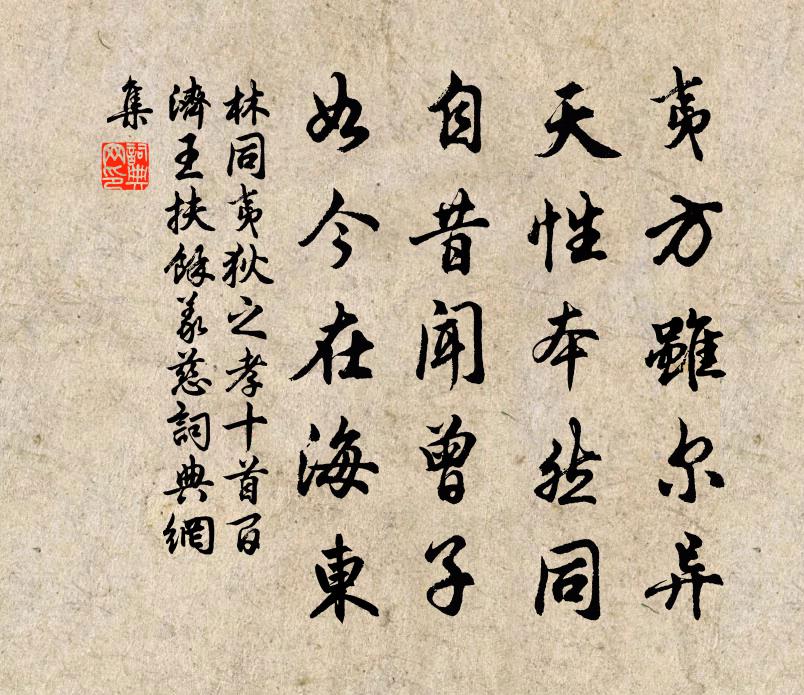 夷方雖尔异
天性本然同
自昔聞曾子
如今在海東
林同夷狄之孝十首百
濟王扶餘义慈詞典網
集
詞典網印